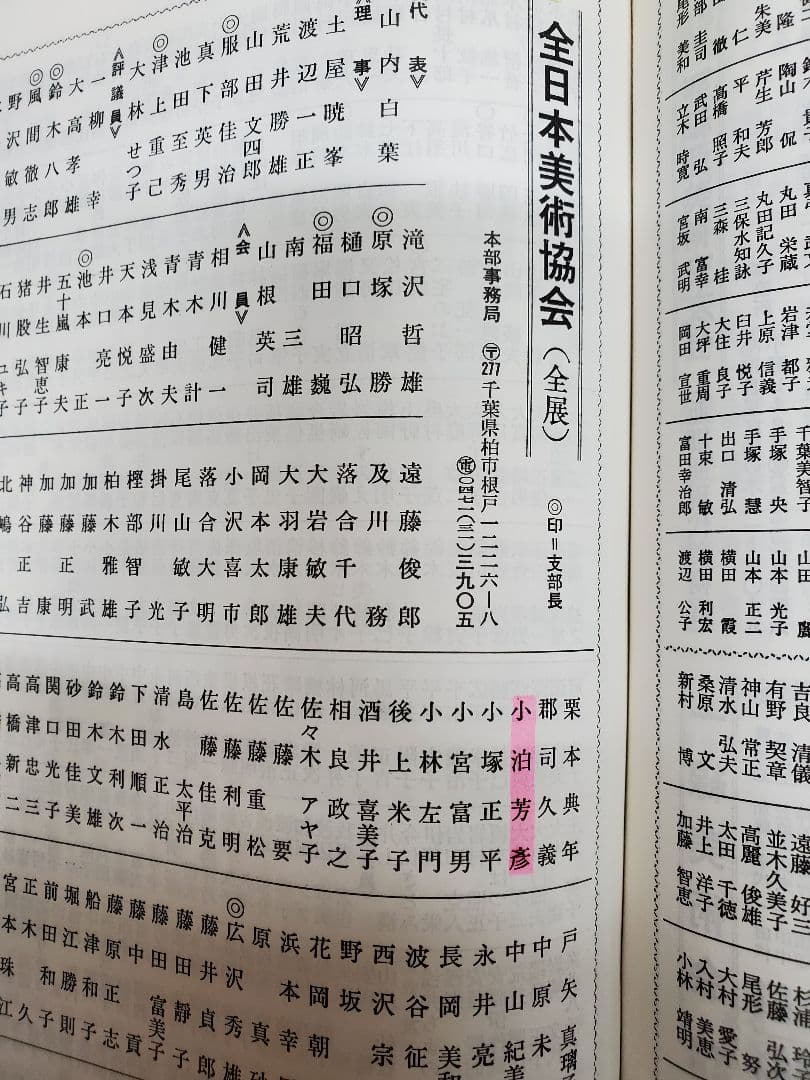 全日本美術協会（全展）
◎印＝支部長
本部事務局 〒277 千葉県柏市根戸一二二六―八
電〇四七一（三一）三九〇五
代表》
山内白葉
《理事》
土屋暁峯
渡辺一正
荒井勝雄
山田文四郎
◎服部佳治
真下英男
池田至秀
◎津上重己
大林せつ子
《評議員》
一柳幸
大高孝雄
◎鈴木八郎
◎風間徹志
野沢敏男
滝沢哲雄
◎原塚勝
樋口昭弘
◎福田巍
南三雄
山根英司
《会員》
相川健一
青木計
青木由夫
浅見盛次
天本悦子
井口亮一
◎池本正
五十嵐康夫
井生智恵子
猪股弘子
石川ユキ子
遠藤俊郎
及川務
落合千代
大岩敏夫
大羽康雄
岡本太郎
小沢喜市
落合大明
尾山敏子
掛川光
樫部智子
柏木雅雄
加藤武
加藤正明
加藤康
神谷正吉
北嶋弘
栗本典年
郡司久義
小泊芳彦
小塚正平
小宮富男
小林左門
後上米子
酒井喜美子
相良政之
佐々木アヤ子
佐藤要
佐藤重松
佐藤利明
佐藤佳克
島太平治
清水正治
下田順一
鈴木利次
鈴木文雄
砂田佳美
関口子
高津忠三
高橋新二
戸矢真璃子
中原未
中山紀美
永井亮
長岡美和
波谷征
西沢宗
野坂
花岡朝
浜本幸
原真砂
◎広沢秀雄
藤井貞郎
藤田靜子
藤田富美子
藤中貢
藤原正志
船津和子
堀江勝則
前田和子
正木久
宮本珠江
尾形 美和
陶山 侃
芹生 芳郎
平 和夫
高橋 照子
武田 弘
立木 時寛
丸田 栄蔵
丸田記久子
三保水知詠
三森 桂
南 富幸
宮坂 武明
岩津 都子
上原 信義
臼井 悦子
大住 良子
大坪 重周
岡田 宣世
千葉美智子
手塚 央
手塚 慧
出口 清弘
十束 敏
富田幸治郎
山田 麗
山本 光子
山本 正二
横田 霞
横田 利宏
渡辺 公子
吉良 清儀
有野 契章
神山 常正
清水 弘夫
桑原 文
新村 博
遠藤 好三
並木久美子
高麗 俊雄
太田 千徳
井上 洋子
加藤 智恵
杉浦 玲子
佐藤 弘次
尾形 努
大村 愛子
入村 美恵
小林 靖明